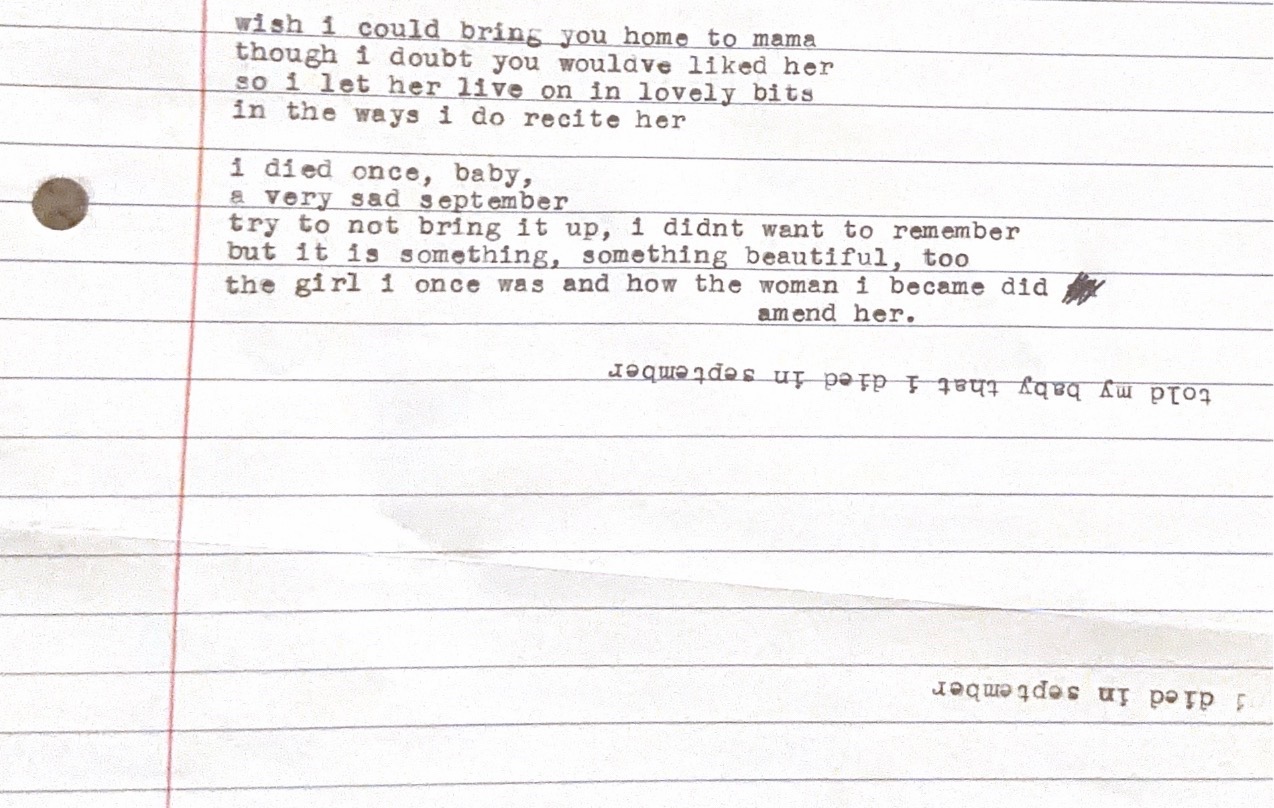 wish i could bring you home to mama
though i doubt you wouldve liked her
so i let her live on in lovely bits
in the ways i do recite her
i died once, baby,
a very sad september
try to not bring it up, i didnt want to remember
but it is something, something beautiful, too
the girl i once was and how the woman i became did
amend her.
told my baby that i died in september
i died in september